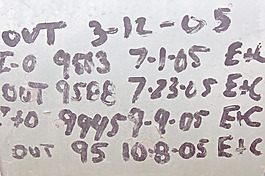 OUT 3-12-05
I-O 9553 7-1-05 E+C
OUT 9588 7-23-05 E+C
I+O 9945 9-9-05 E+C
OUT 95 10-8-05 E+C